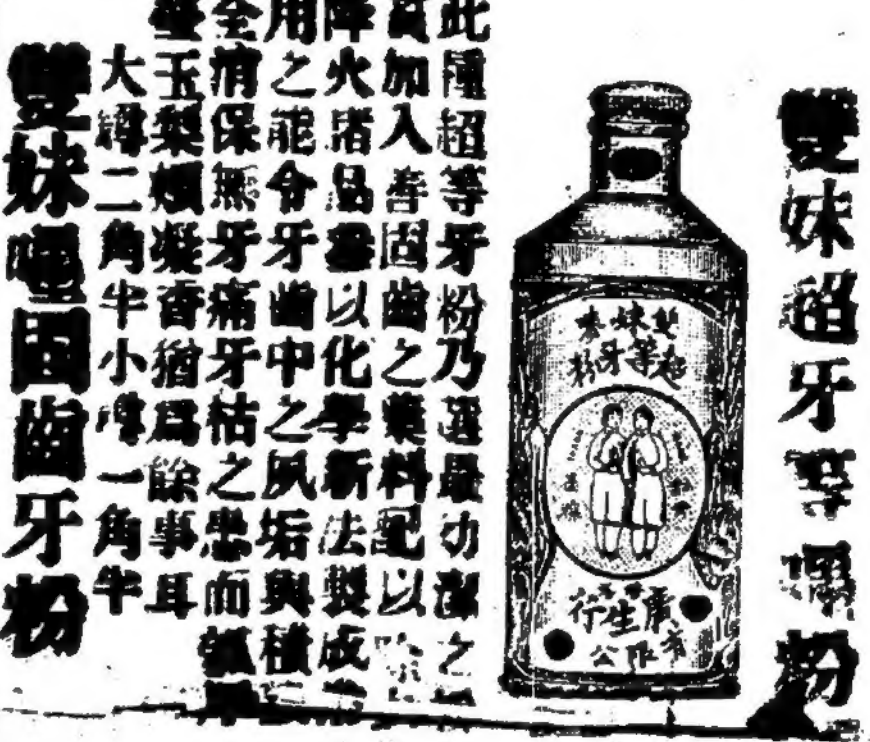 雙妹超牙等嚜粉
雙妹
超等牙粉
廣生行
有限公
此種超等牙粉乃選最功潔之
加入善固齒之藥料配以
降火諸品以化學新法製成
用之能令牙齒中之夙垢與積
全消保無牙痛牙枯之患而
玉梨頰凝香猶爲餘事耳
大罇二角半小罇一角半
雙妹嚜固齒牙粉